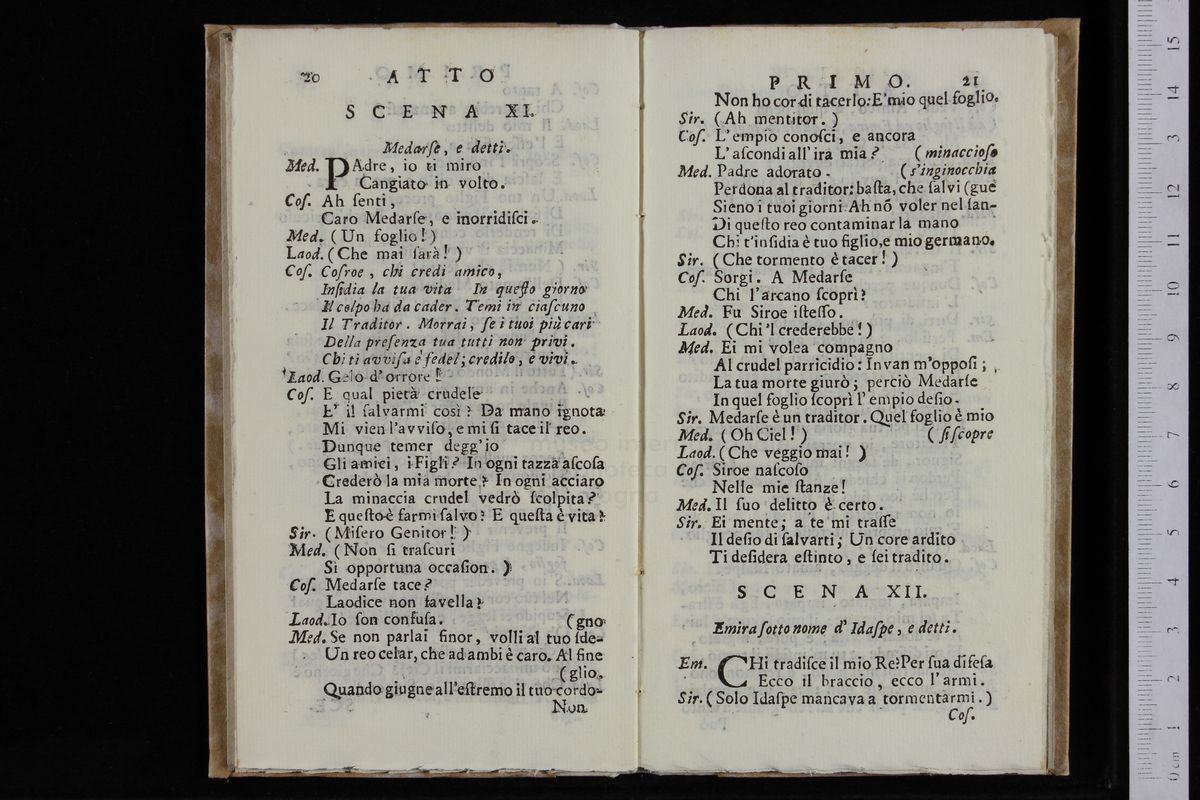 20 ATTO
SCENA XI.
Medarſe, e detti.
Med. PAdre, io ti miro
Cangiato in volto.
Coſ. Ah ſenti,
Caro Medarſe, e inorridiſci.
Med. (Un foglio!)
Laod. (Che mai ſarà!)
Coſ. Coſroe, chi credi amico,
Inſidia la tua vita In queſto giorno
Il colpo ha da cader. Temi in ciaſcuno
Il Traditor. Morrai, ſe i tuoi più cari
Della preſenza tua tutti non privi.
Chi ti avviſa è fedel; credilo, e vivi.
Laod. Gelo d'orrore!
Coſ. E qual pietà crudele
E' il ſalvarmi così? Da mano ignota
Mi vien l'avviſo, e mi ſi tace il reo.
Dunque temer degg'io
Gli amici, i Figli? In ogni tazza aſcoſa
Crederò la mia morte? In ogni acciaro
La minaccia crudel vedrò ſcolpita?
E queſto è farmi ſalvo? E queſta è vita?
Sir. (Miſero Genitor!)
Med. (Non ſi traſcuri
Sì opportuna occaſion.)
Coſ. Medarſe tace?
Laodice non favella?
Laod. Io ſon confuſa. (gno
Med. Se non parlai finor, volli al tuo ſde-
Un reo celar, che ad ambi è caro. Al fine
(glio,
Quando giugne all'eſtremo il tuo cordo-
Non
PRIMO. 21
Non ho cor di tacerlo: E' mio quel foglio.
Sir. (Ah mentitor.)
Coſ. L'empio conoſci, e ancora
L'aſcondi all'ira mia? (minaccioſo
Med. Padre adorato. (s'inginocchia
Perdona al traditor: baſta, che ſalvi (gue
Sieno i tuoi giorni. Ah nõ voler nel ſan-
Di queſto reo contaminar la mano
Chi t'inſidia è tuo figlio, e mio germano.
Sir. (Che tormento è tacer!)
Coſ. Sorgi. A Medarſe
Chi l'arcano ſcoprì?
Med. Fu Siroe iſteſſo.
Laod. (Chi 'l crederebbe!)
Med. Ei mi volea compagno
Al crudel parricidio: In van m'oppoſi;
La tua morte giurò; perciò Medarſe
In quel foglio ſcoprì l'empio deſio.
Sir. Medarſe è un traditor. Quel foglio è mio
Med. (Oh Ciel!) (ſi ſcopre
Laod. (Che veggio mai!)
Coſ. Siroe naſcoſo
Nelle mie ſtanze!
Med. Il ſuo delitto è certo.
Sir. Ei mente; a te mi traſſe
Il deſio di ſalvarti; Un core ardito
Ti deſidera eſtinto, e ſei tradito.
SCENA XII.
Emira ſotto nome d' Idaſpe, e detti.
Em. CHi tradiſce il mio Re? Per ſua difeſa
Ecco il braccio, ecco l'armi.
Sir. (Solo Idaſpe mancava a tormentarmi.)
Coſ.
0 cm 1 2 3 4 5 6 7 8 9 10 11 12 13 14 15